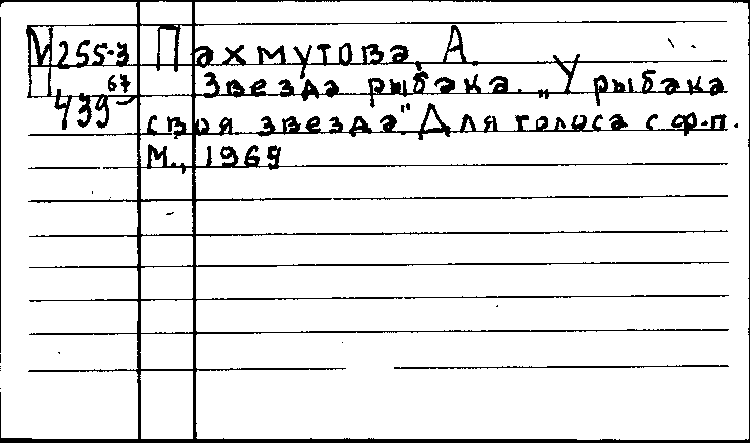 М 255-3 Пахмутова, А.
П 67 Звезда рыбака. „У рыбака
439 своя звезда." Для голоса с ф.-п.
М., 1969